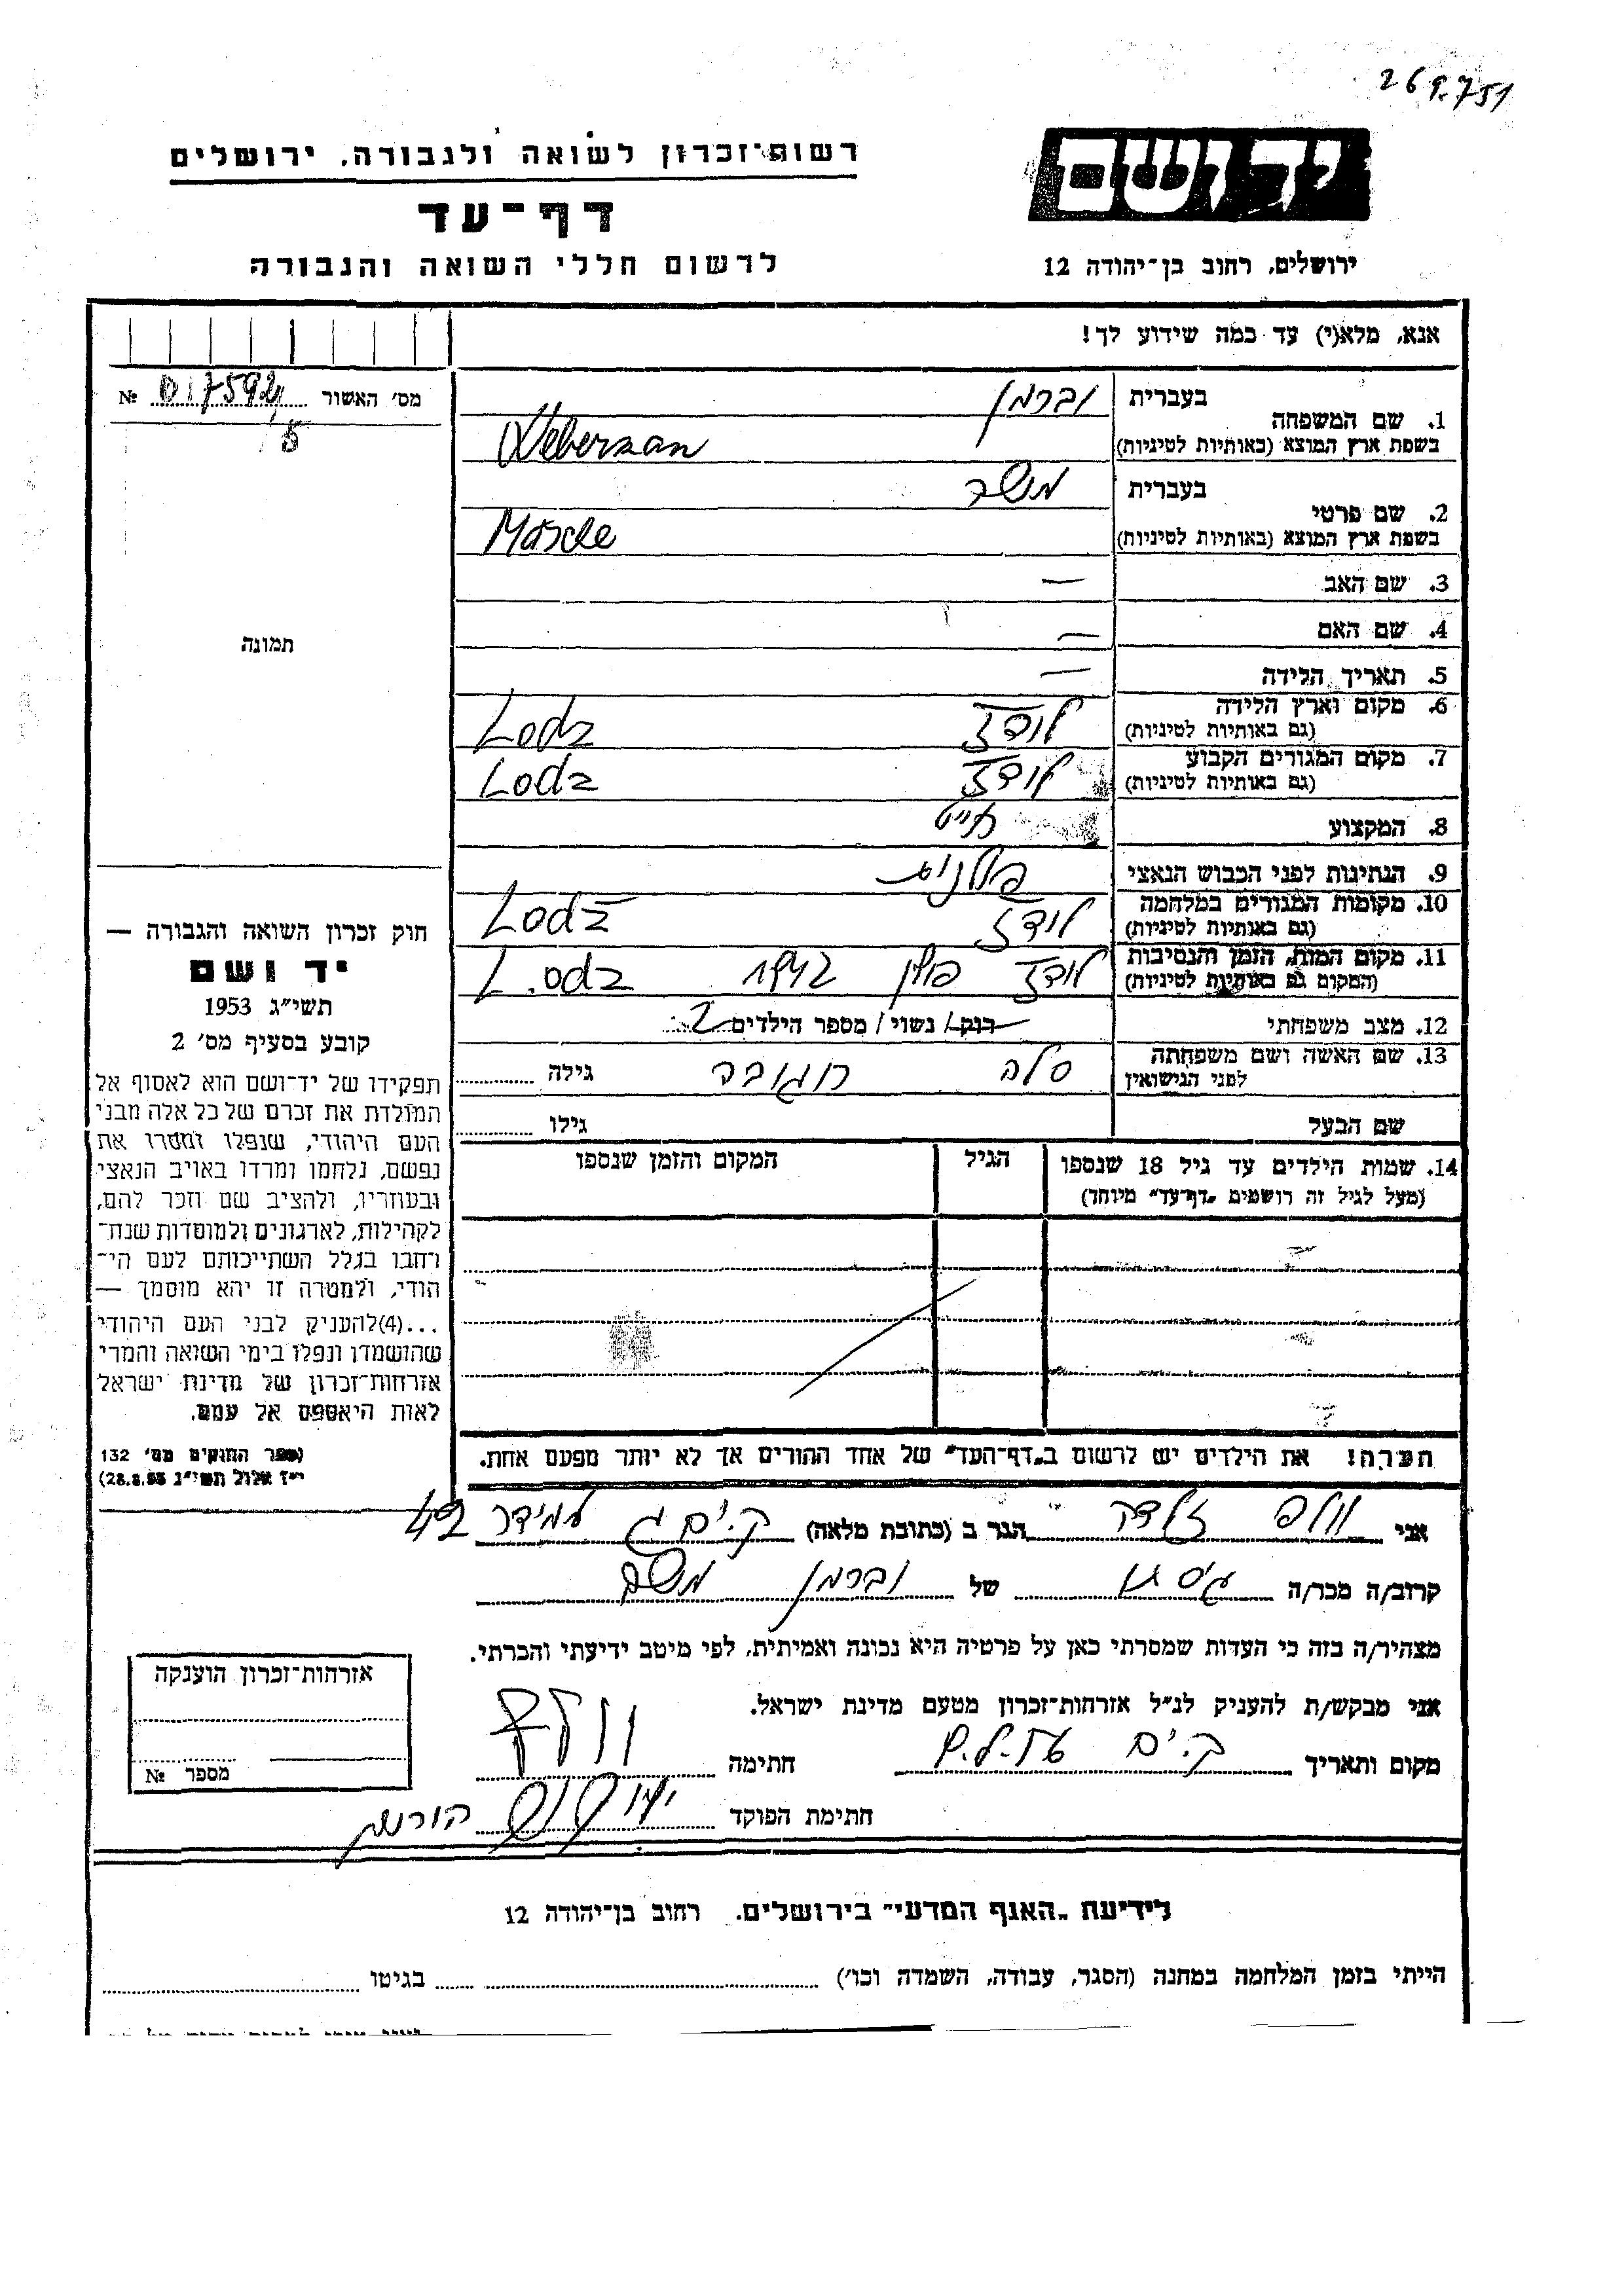 269.751
רשות־זכרון לשואה ולגבורה. ירושלים
יד ושם
דף־עד
לרשום חללי השואה והגבורה
ירושלים, רחוב בן־יהודה 12
אנא, מלא(י) עד כמה שידוע לך!
מס' האשור № 017592
5
1. שם המשפחה
בעברית וברמן
בשפת ארץ המוצא (באותיות לטיניות) Weberman
2. שם פרטי
בעברית משה
בשפת ארץ המוצא (באותיות לטיניות) Mosche
3. שם האב —
4. שם האם —
5. תאריך הלידה —
6. מקום וארץ הלידה
(גם באותיות לטיניות) לודז Lodz
7. מקום המגורים הקבוע
(גם באותיות לטיניות) לודז Lodz
8. המקצוע חייט
9. הנתינות לפני הכבוש הנאצי פולנית
10. מקומות המגורים במלחמה
(גם באותיות לטיניות) לודז Lodz
11. מקום המות, הזמן והנסיבות
(המקום גם באותיות לטיניות) לודז פולין 1942 Lodz
12. מצב משפחתי רוק/ נשוי/ מספר הילדים 2
13. שם האשה ושם משפחתה
לפני הנישואין סלה גילה
שם הבעל גילו
14. שמות הילדים עד גיל 18 שנספו
(מעל לגיל זה רושמים „דף־עד” מיוחד)
הגיל
המקום והזמן שנספו
הערה! את הילדים יש לרשום ב„דף־העד” של אחד ההורים אך לא יותר מפעם אחת.
תמונה
חוק זכרון השואה והגבורה —
יד ושם
תשי״ג 1953
קובע בסעיף מס' 2
תפקידו של יד־ושם הוא לאסוף אל
המולדת את זכרם של כל אלה מבני
העם היהודי, שנפלו ומסרו את
נפשם, נלחמו ומרדו באויב הנאצי
ובעוזריו, ולהציב שם וזכר להם,
לקהילות, לארגונים ולמוסדות שנח־
רבו בגלל השתייכותם לעם הי־
הודי, ולמטרה זו יהא מוסמך —
...(4)להעניק לבני העם היהודי
שהושמדו ונפלו בימי השואה והמרי
אזרחות־זכרון של מדינת ישראל
לאות היאספם אל עמם.
(ספר החוקים מס' 132
י״ז אלול תשי״ג 28.8.53)
אני וולף זלדה הגר ב (כתובת מלאה) ק. ים ג 49
קרוב/ה מכר/ה גיסתו של וברמן משה
מצהיר/ה בזה כי העדות שמסרתי כאן על פרטיה היא נכונה ואמיתית, לפי מיטב ידיעתי והכרתי.
אני מבקש/ת להעניק לנ״ל אזרחות־זכרון מטעם מדינת ישראל.
מקום ותאריך ק. ים חתימה
חתימת הפוקד
אזרחות־זכרון הוענקה
מספר №
לידיעת „האגף המדעי” בירושלים. רחוב בן־יהודה 12
הייתי בזמן המלחמה במחנה (הסגר, עבודה, השמדה וכו') בגיטו